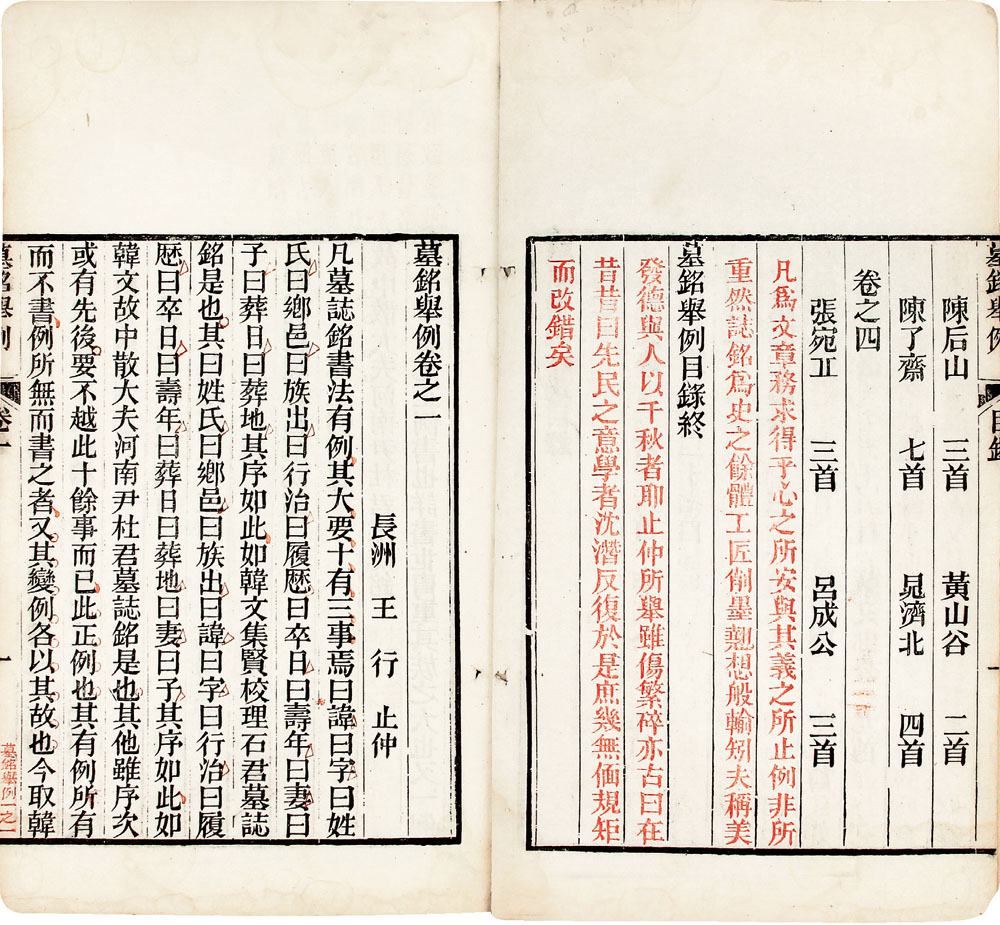 墓銘舉例 目錄 一
陳后山 三首 黃山谷 二首
陳了齋 七首 晁濟北 四首
卷之四
張宛丘 三首 呂成公 三首
凡爲文章務求得乎心之所安與其義之所止例非所
重然誌銘爲史之餘體工匠削墨懸想般輸矧夫稱美
墓銘舉例目錄終
發德與人以千秋者耶止仲所舉雖傷繁碎亦古曰在
昔昔曰先民之意學者沈潛反復於是庶幾無偭規矩
而改錯矣
墓銘舉例卷之一
長洲 王 行 止仲
凡墓誌銘書法有例其大要十有三事焉曰諱曰字曰姓
氏曰鄉邑曰族出曰行治曰履歷曰卒日曰壽年曰妻曰
子曰葬日曰葬地其序如此如韓文集賢校理石君墓誌
銘是也其曰姓氏曰鄉邑曰族出曰諱曰字曰行治曰履
歷曰卒日曰壽年曰葬日曰葬地曰妻曰子其序如此如
韓文故中散大夫河南尹杜君墓誌銘是也其他雖序次
或有先後要不越此十餘事而已此正例也其有例所有
而不書例所無而書之者又其變例各以其故也今取韓
墓銘舉例 卷一 一
墓銘舉例一之一